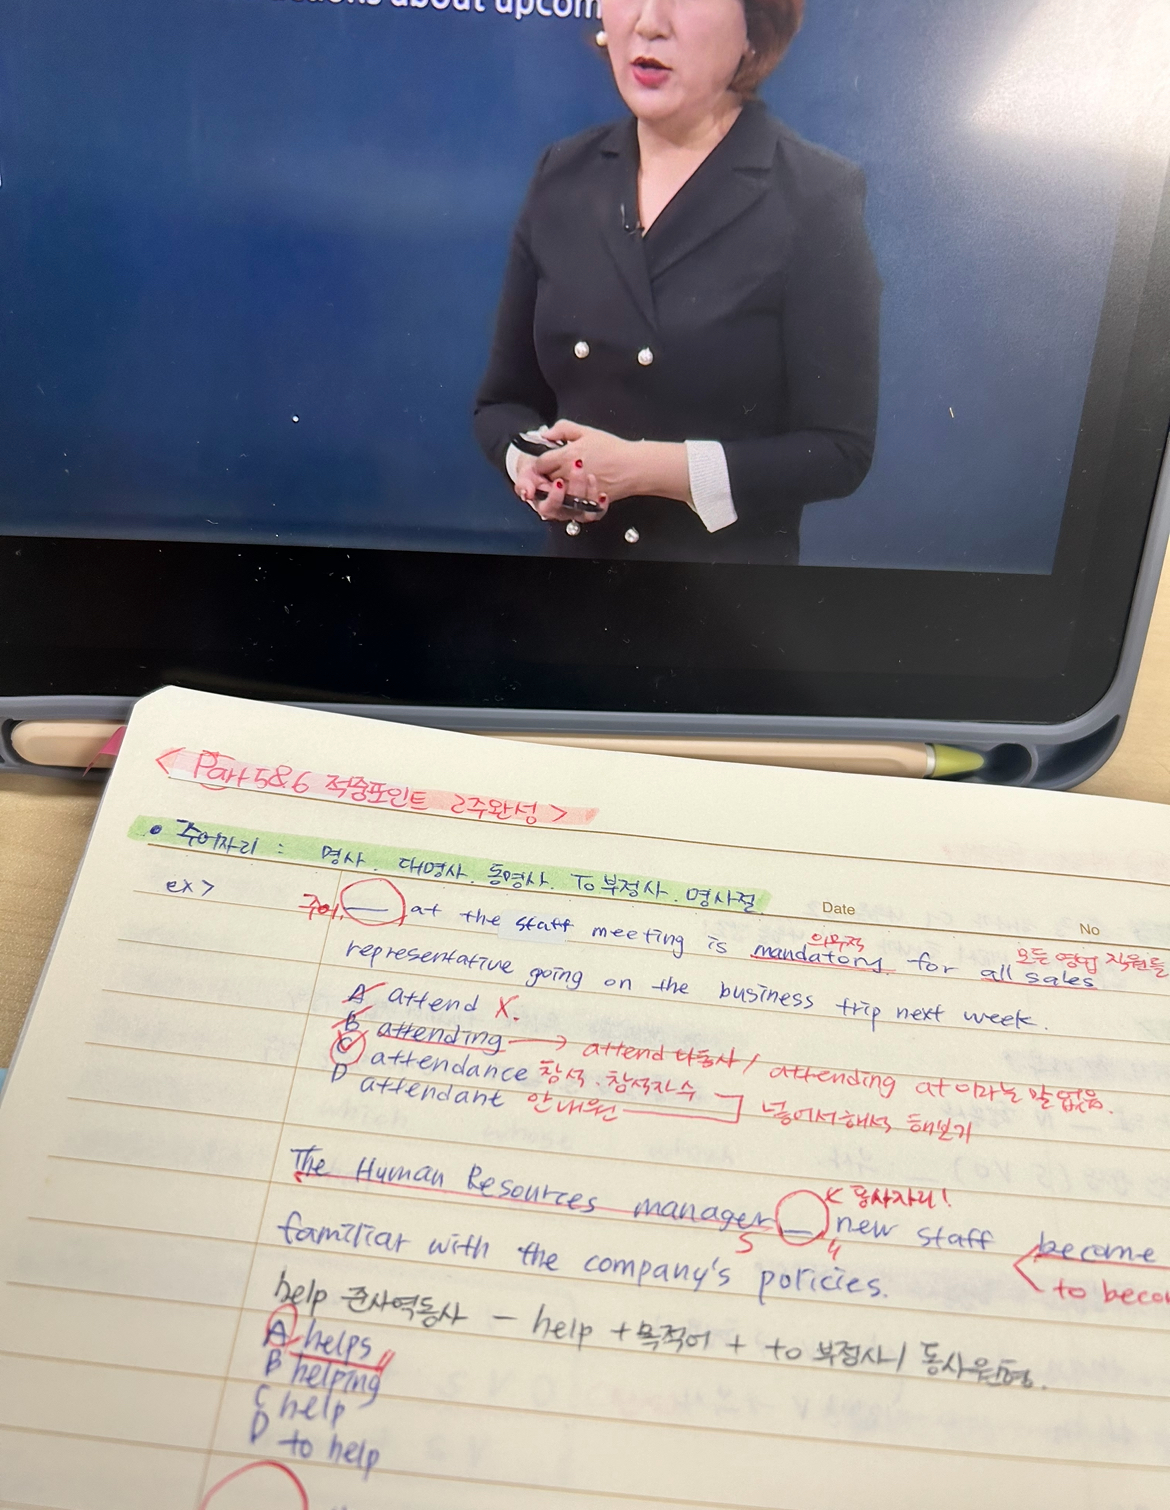 about upcom
< Part 5&6 적중포인트 2주완성 >
• 주어자리 : 명사. 대명사. 동명사. To 부정사. 명사절.
Date
No
ex >
주어. at the staff meeting is mandatory for all sales
의무적
모든 영업 직원들
representative going on the business trip next week.
A attend X.
B attending → attend 타동사 / attending at 이라는 말 없음.
C attendance 참석. 참석자수
D attendant 안내원
넣어서 해석 해보기
The Human Resources manager new staff become
< 동사자리!
S
familiar with the company's policies.
help 준사역동사 - help + 목적어 + to 부정사 / 동사원형.
A helps
B helping
C help
D to help